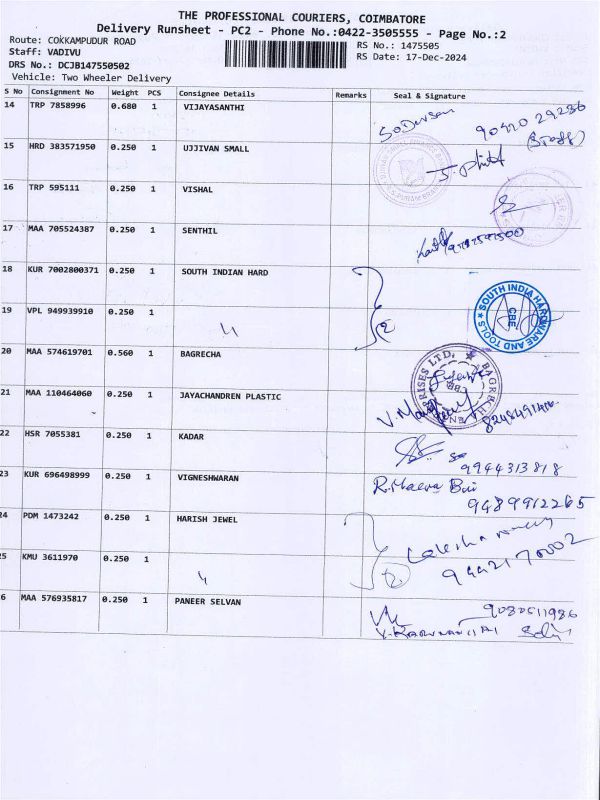 THE PROFESSIONAL COURIERS, COIMBATORE
Delivery Runsheet - PC2 - Phone No.:0422-3505555 - Page No.:2
Route: COKKAMPUDUR ROAD
RS No.: 1475505
Staff: VADIVU
RS Date: 17-Dec-2024
DRS No.: DCJB147550502
Vehicle: Two Wheeler Delivery
S No Consignment No Weight PCS Consignee Details Remarks Seal & Signature
14 TRP 7858996 0.680 1 VIJAYASANTHI
15 HRD 383571950 0.250 1 UJJIVAN SMALL
16 TRP 595111 0.250 1 VISHAL
17 MAA 705524387 0.250 1 SENTHIL
18 KUR 7002800371 0.250 1 SOUTH INDIAN HARD
SOUTH INDIA HARDWARE AND TOOLS
CBE
19 VPL 949939910 0.250 1 2
20 MAA 574619701 0.560 1 BAGRECHA
21 MAA 110464060 0.250 1 JAYACHANDREN PLASTIC
22 HSR 7055381 0.250 1 KADAR
9944313818
23 KUR 696498999 0.250 1 VIGNESHWARAN
9489912265
24 PDM 1473242 0.250 1 HARISH JEWEL
25 KMU 3611970 0.250 1 2
9442170002
6 MAA 576935817 0.250 1 PANEER SELVAN
9080511986